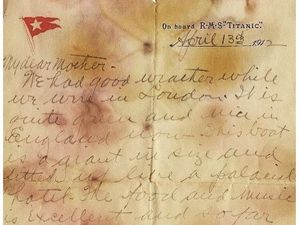 On board R·M·S·"TITANIC".
April 13th 1912
My dear Mother-
We had good weather while
we were in London. It is
quite green and nice in
England now. This boat
is a giant in size and
fitted up like a palacial
hotel. The food and music
is excellent and so far